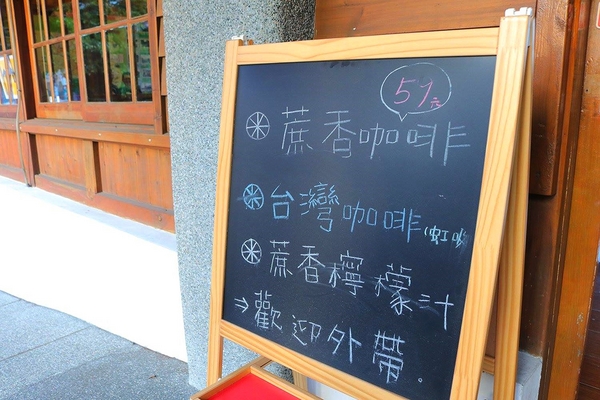 51元
蔗香咖啡
台灣咖啡(虹吸)
蔗香檸檬汁
→歡迎外帶.